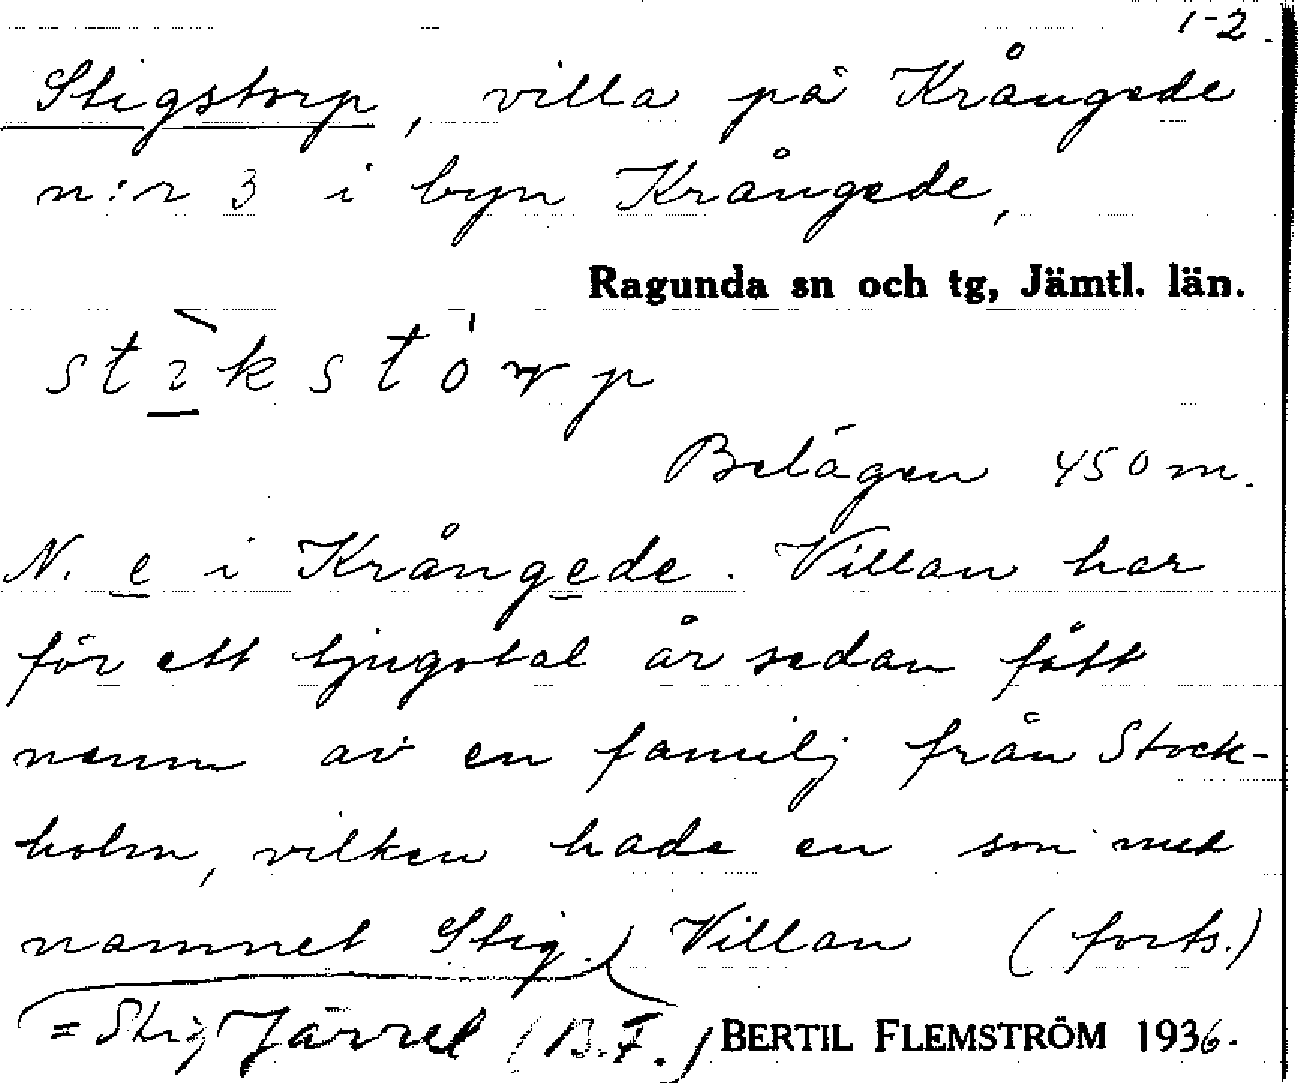 1-2.
Stigstorp, villa på Krångede
n:r 3 i byn Krångede,
Ragunda sn och tg, Jämtl. län.
stìkstórp
Belägen 450 m.
N. e i Krångede. Villan har
för ett tjugotal år sedan fått
namn av en familj från Stock-
holm, vilken hade en son med
namnet Stig. Villan (forts.)
= Stig Järrel (B.F.) BERTIL FLEMSTRÖM 1936.